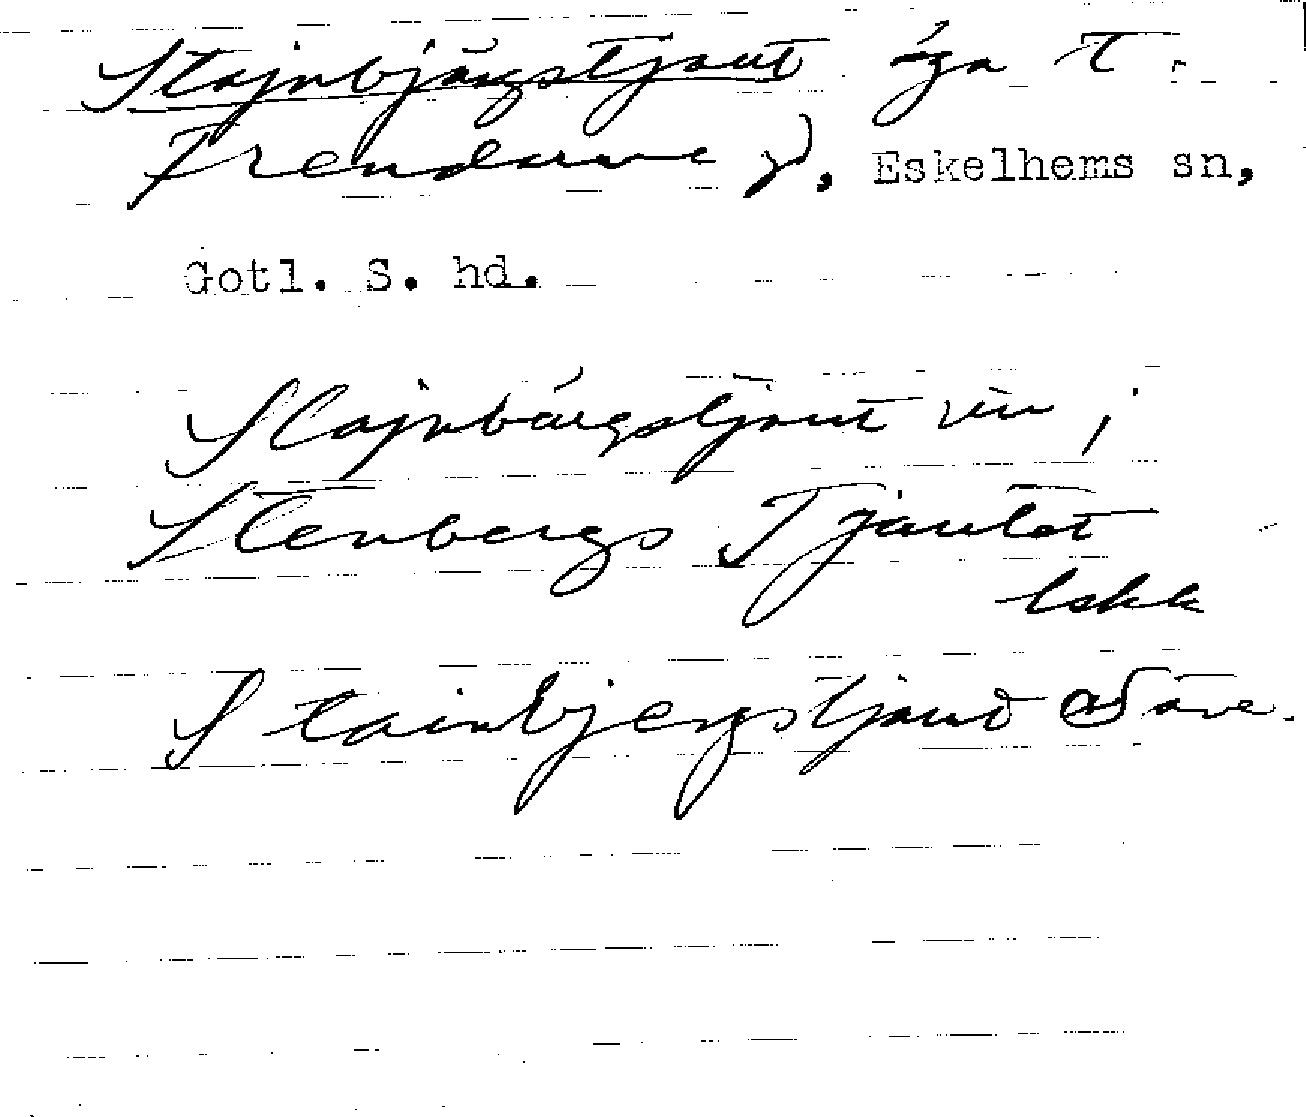 Stajnbjärgstjaut äga t.
Frendarve gd, Eskelhems sn,
Gotl. S. hd.
Stajnbärgstjaut
Stenbergs Tjautet
lskk
Stainbjergstjaud Säve.